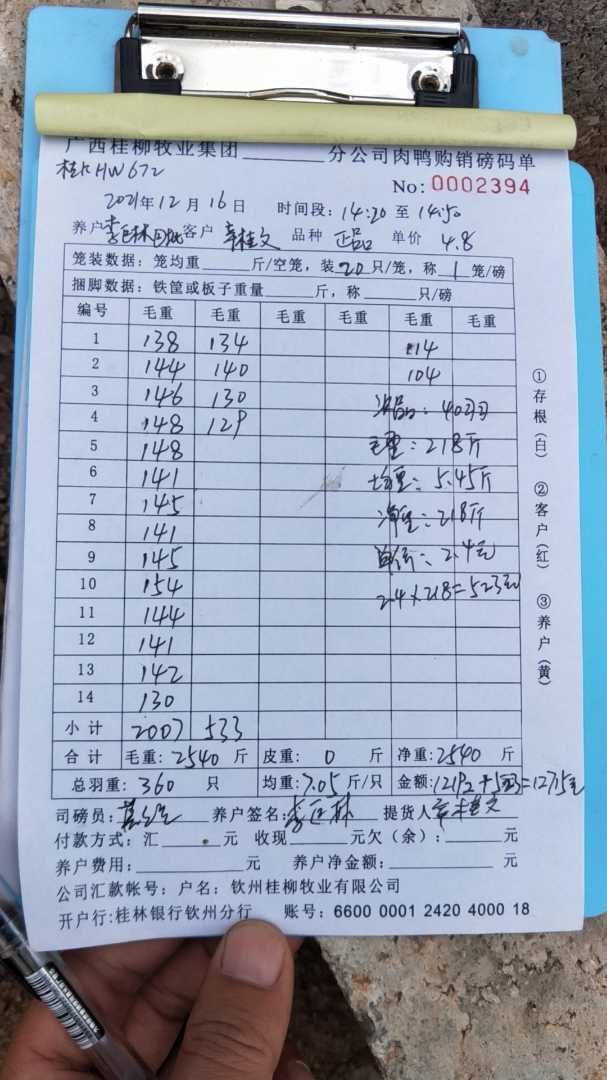 广西桂柳牧业集团______分公司肉鸭购销磅码单
桂KHW672
No: 0002394
2021年12月16日 时间段: 14:20 至 14:50
养户 客户 辛桂文 品种 正品 单价 4.8
笼装数据: 笼均重______斤/空笼, 装20只/笼, 称1笼/磅
捆脚数据: 铁筐或板子重量______斤, 称______只/磅
编号 毛重 毛重 毛重 毛重 毛重 毛重
1 138 134 114
2 144 140 104
3 146 130 次品: 40羽
4 148 129 毛重: 218斤
5 148
6 141 均重: 5.45斤
7 145 净重: 218斤
8 141
9 145 单价: 2.4元
10 154 2.4×218=523元
11 144
12 141
13 142
14 130
小计 2007 533
合计 毛重: 2540 斤 皮重: 0 斤 净重: 2540 斤
总羽重: 360 只 均重: 7.05斤/只 金额: 12192+523=12715元
司磅员: 养户签名: 李巨林 提货人 辛桂文
付款方式: 汇______元 收现______元欠(余): ______元
养户费用: ______元 养户净金额: ______元
公司汇款帐号: 户名: 钦州桂柳牧业有限公司
开户行:桂林银行钦州分行 账号: 6600 0001 2420 4000 18
①存根(白) ②客户(红) ③养户(黄)